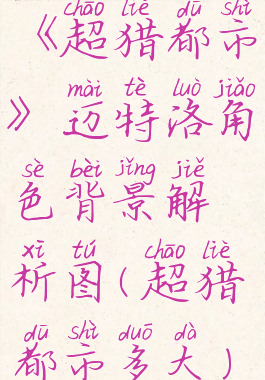 chāo liè dū shì
《超猎都市
mài tè luò jiǎo
》迈特洛角
sè bèi jǐng jiě
色背景解
xī tú chāo liè
析图(超猎
dū shì duō dà
都市多大)